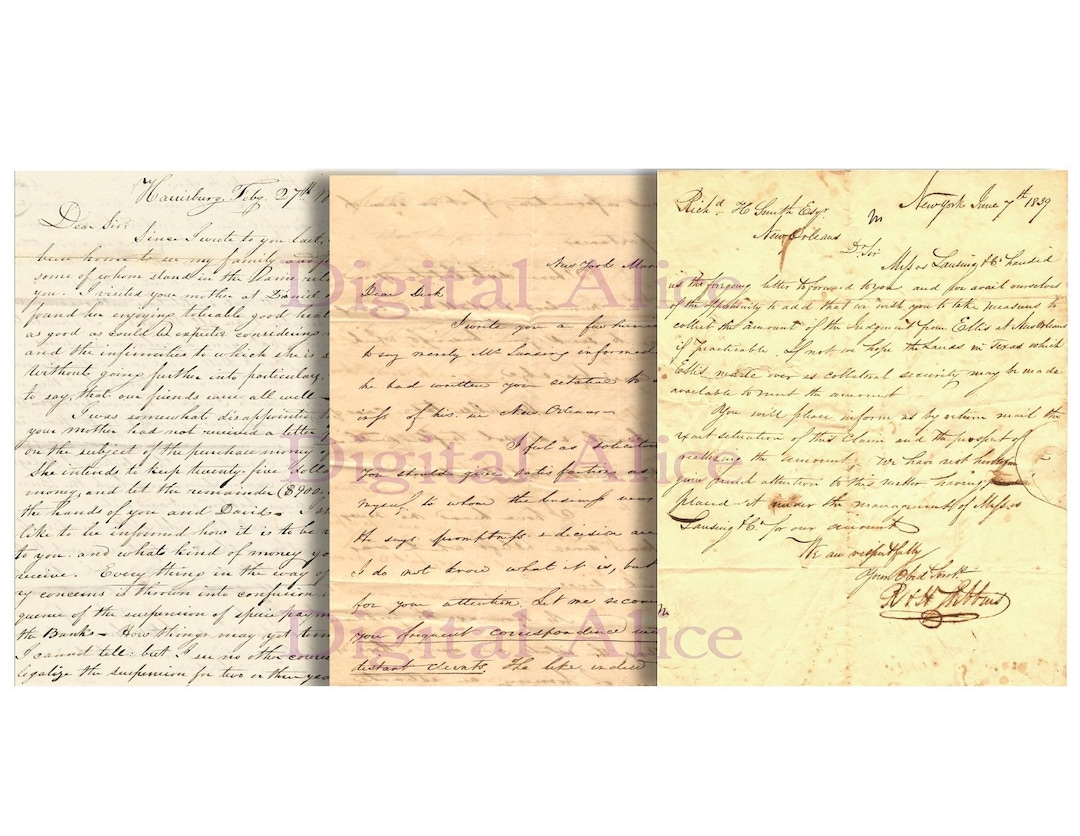 Harrisburg Feby. 27th 18
Dear Sir:
Since I wrote to you last,
been home to see my family and
some of whom stand in the same rela
you. I visited your mother at Daniel
found her enjoying toluable good heal
as good as could be expected considering
and the infirmities to which she is s
Without going further into particulars,
to say, that our friends were all well
I was somewhat disappointe
your mother had not received a letter
on the subject of the purchase money
She intends to keep twenty-five dolla
money, and let the remainder ($900.
the hands of you and David. I s
like to be informed how it is to be
to you. and what kind of money yo
receive. Every thing in the way of
ry concerns is thrown into confusion
quence of the suspension of specie pay
the Banks. How things may yet
I cannot tell: but I see no other course
legalize the suspension for two or three yea
New York Mar
Dear Dick
I write you a few lines
to say merely Mr Lansing informed
he had written you relative to
iness of his in New Orleans
I feel as solicitou
you should give satisfaction as
myself to whom the business was
He says promptness & decision are
I do not know what it is, but
for your attention. Let me recom
you frequent correspondence with
distant clients. He like indeed
New York June 7th 1839
Richd. H Smith Esqr
New Orleans
Dr. Sir
Messrs Lansing & Co handed
us the forgoing letter to forward to you and we avail ourselves
of the opportunity to add that we wish you to take measures to
collect the amount of the Judgment from Ellis at New Orleans
if practicable. If not we hope the lands in Texas which
Ellis made over as collateral security may be made
available to meet the amount
You will please inform us by return mail the
exact situation of this claim and the prospect of
realizing the amount. We have not
your attention to this matter having
placed it under the management of Messrs
Lansing & Co for our account
We are respectfully
Your Obed Servts
R & H
Digital Alice
Digital Alice
Digital Alice